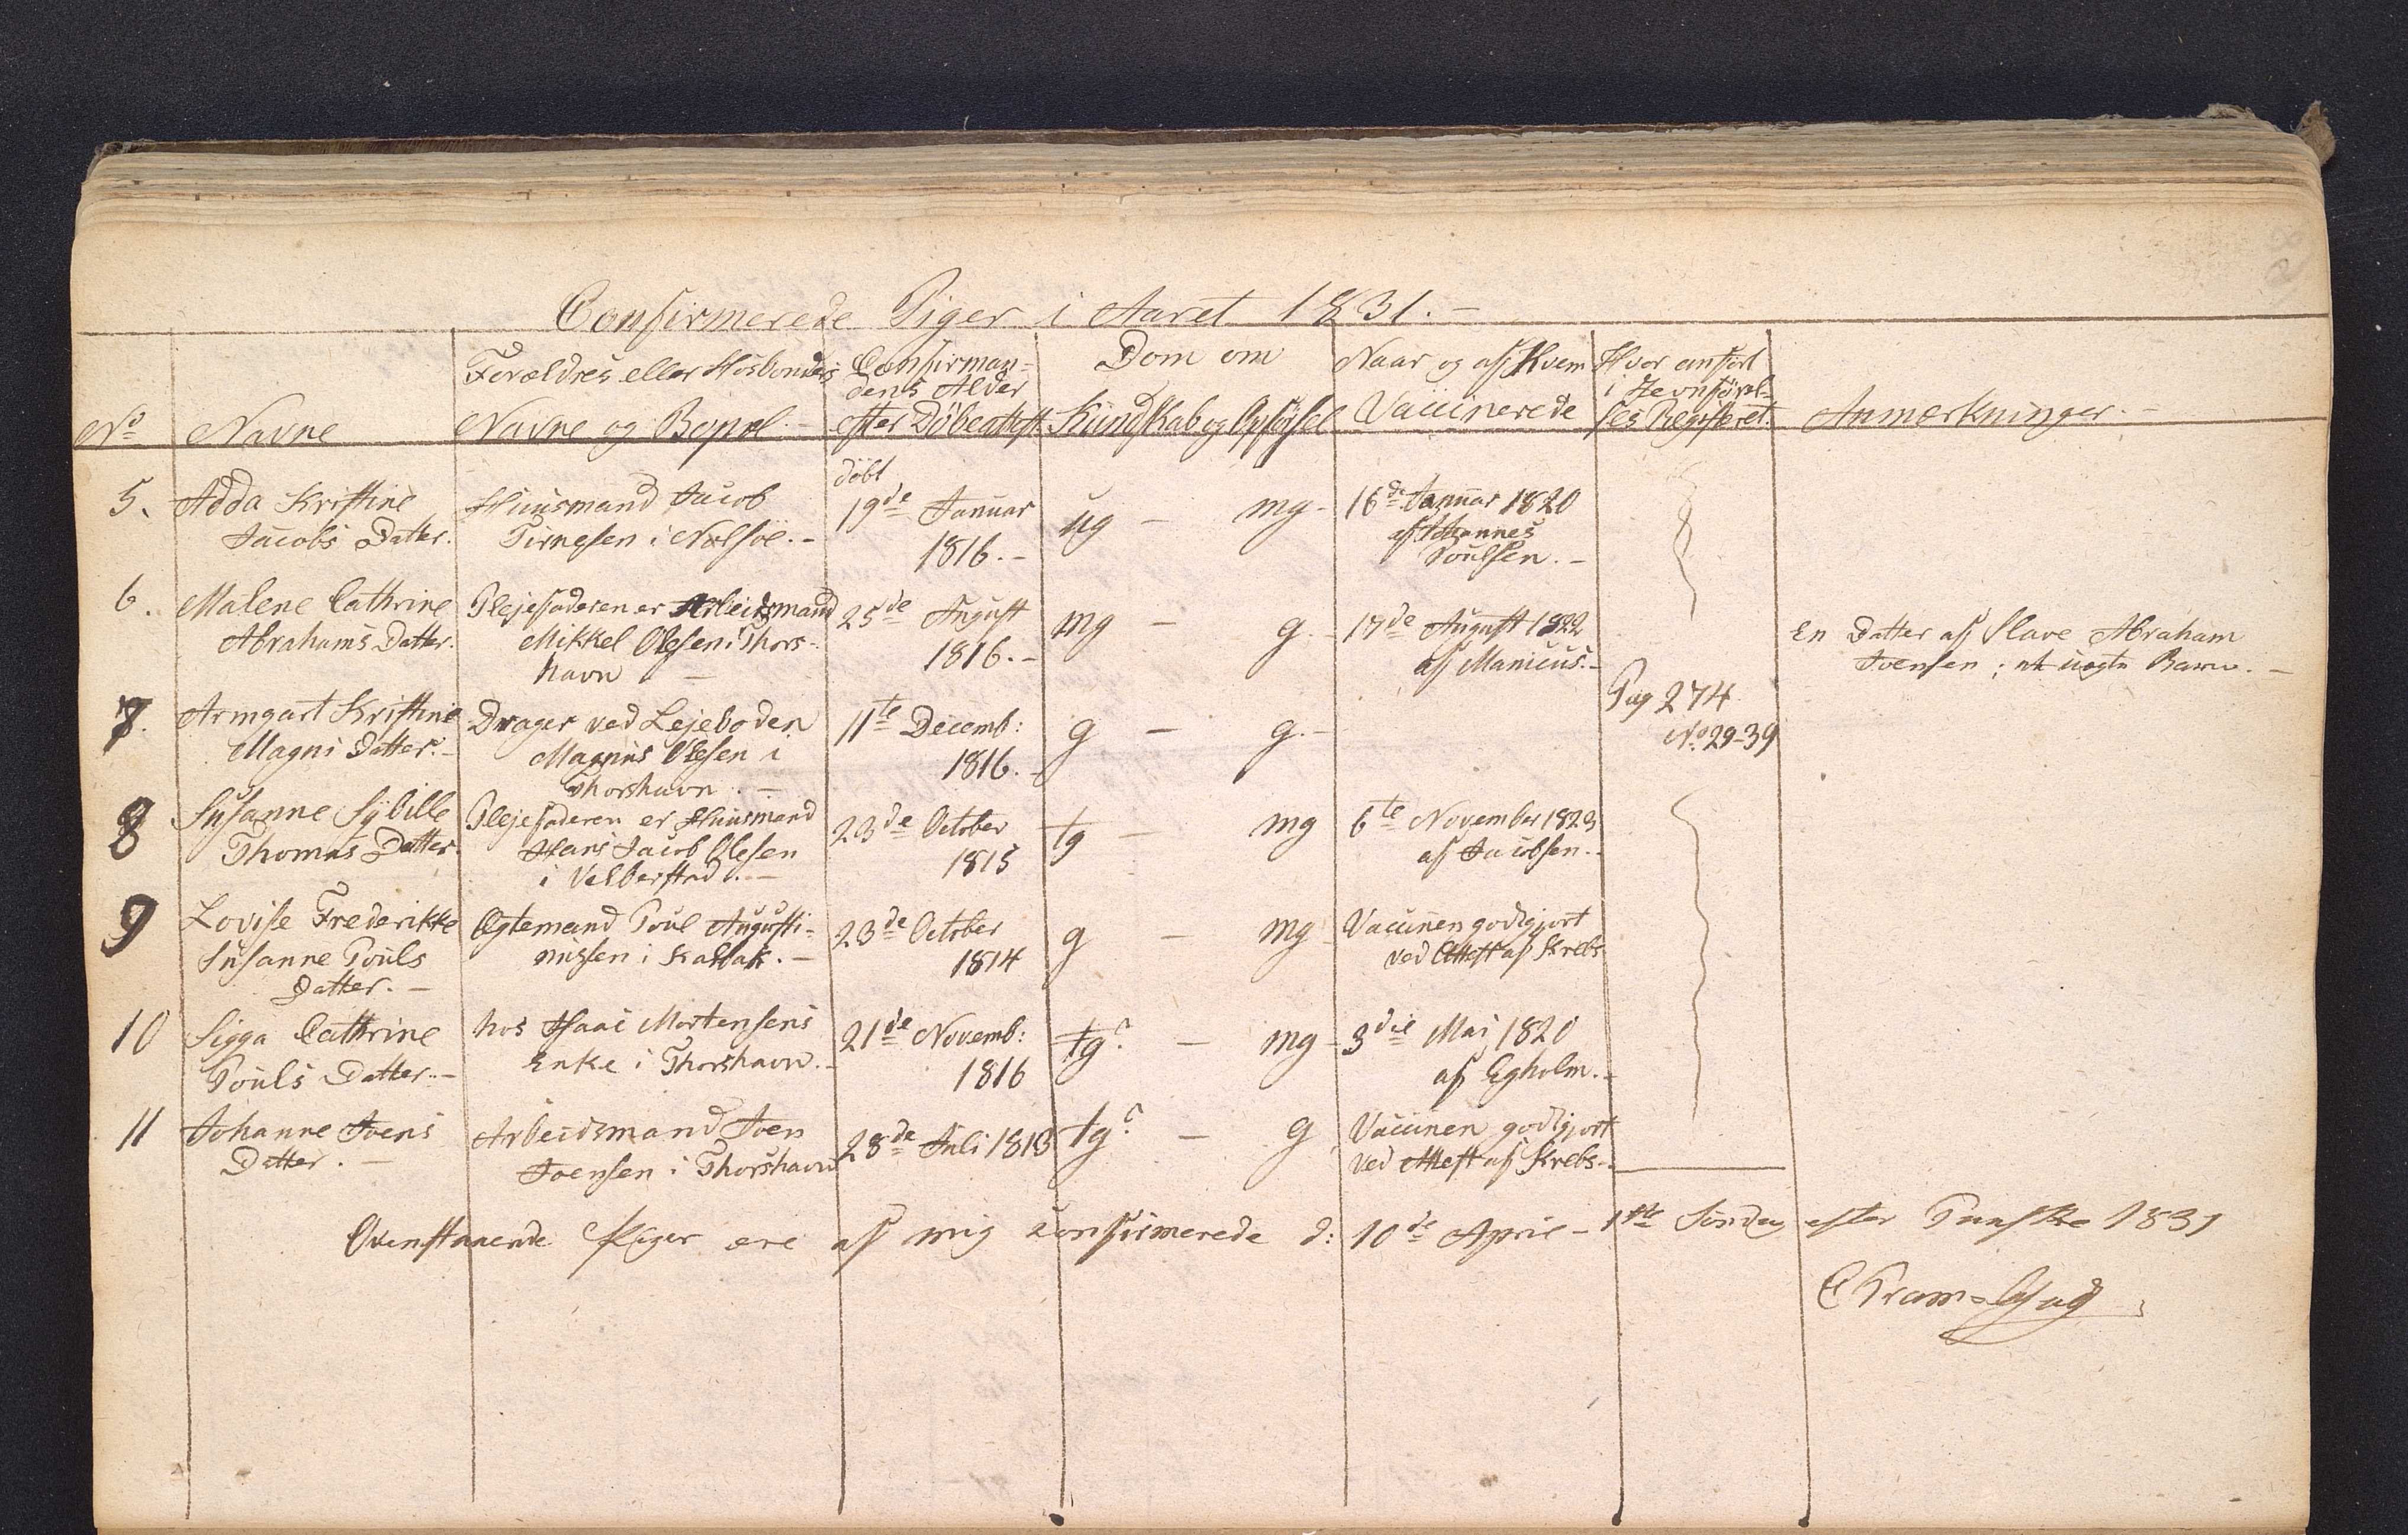 Confirmerede Piger i Aaret 1831.-
No
Navne
Forældres eller Hosbonders
Navne og Bopæl.-
Confirman-
dens Alder
efter Döbeattest
Dom om
Kundskab og Opförsel
Naar og af Hvem
Vaccinerede
Hvor anfört
i Jevnförel-
ses Registeret.
Anmærkninger.-
5. Adda Kristine
Jacobs Datter.
Huusmand Jacob
i Nolsöe.-
döbt
19de Januar
1816.-
ug - mg-
16de Januar 1820
af Johannes
Poulsen.-
6. Malene Cathrine
Abrahams Datter.
Plejefaderen er Arbeidsmand
Mikkel Olesen i Thors-
havn -
25de August
1816.-
mg - g.-
17de August 1822
af Manicus.-
En Datter af Slave Abraham
Joensen; et uægte Barn.-
7. Armgart Kristine
Magni Datter.-
Drager ved Lejeboden
Magnus Olesen i
Thorshavn.-
11te Decemb:
1816.-
g - g.-
Pag 274
No. 29-39
8 Susanne Sybille
Thomas Datter.
Plejefaderen er Huusmand
Hans Jacob Olesen
i Velberstad.-
23de October
1815
tg - mg
6te November 1823
af Jacobsen.-
9 Lovise Frederikke
Susanne Pouls
Datter.-
Ægtemand Poul Augusti-
nussen i Kalbak.-
23de October
1814
g - mg
Vaccinen godtgjort
ved Attest af Krebs
10 Sigga Cathrine
Pouls Datter.-
hos Isaac Mortensens
Enke i Thorshavn.-
21de Novemb:
1816
tg? - mg-
3die Mai 1820
af Egholm.-
11 Johanne Joens
Datter.-
Arbeidsmand Joen
Joensen i Thorshavn
28de Juli 1813
tg? - g
Vaccinen godtgjort
ved Attest af Krebs.-
Ovenstaaende Piger ere af mig confirmerede d: 10de April - 1ste Söndag efter Paaske 1831